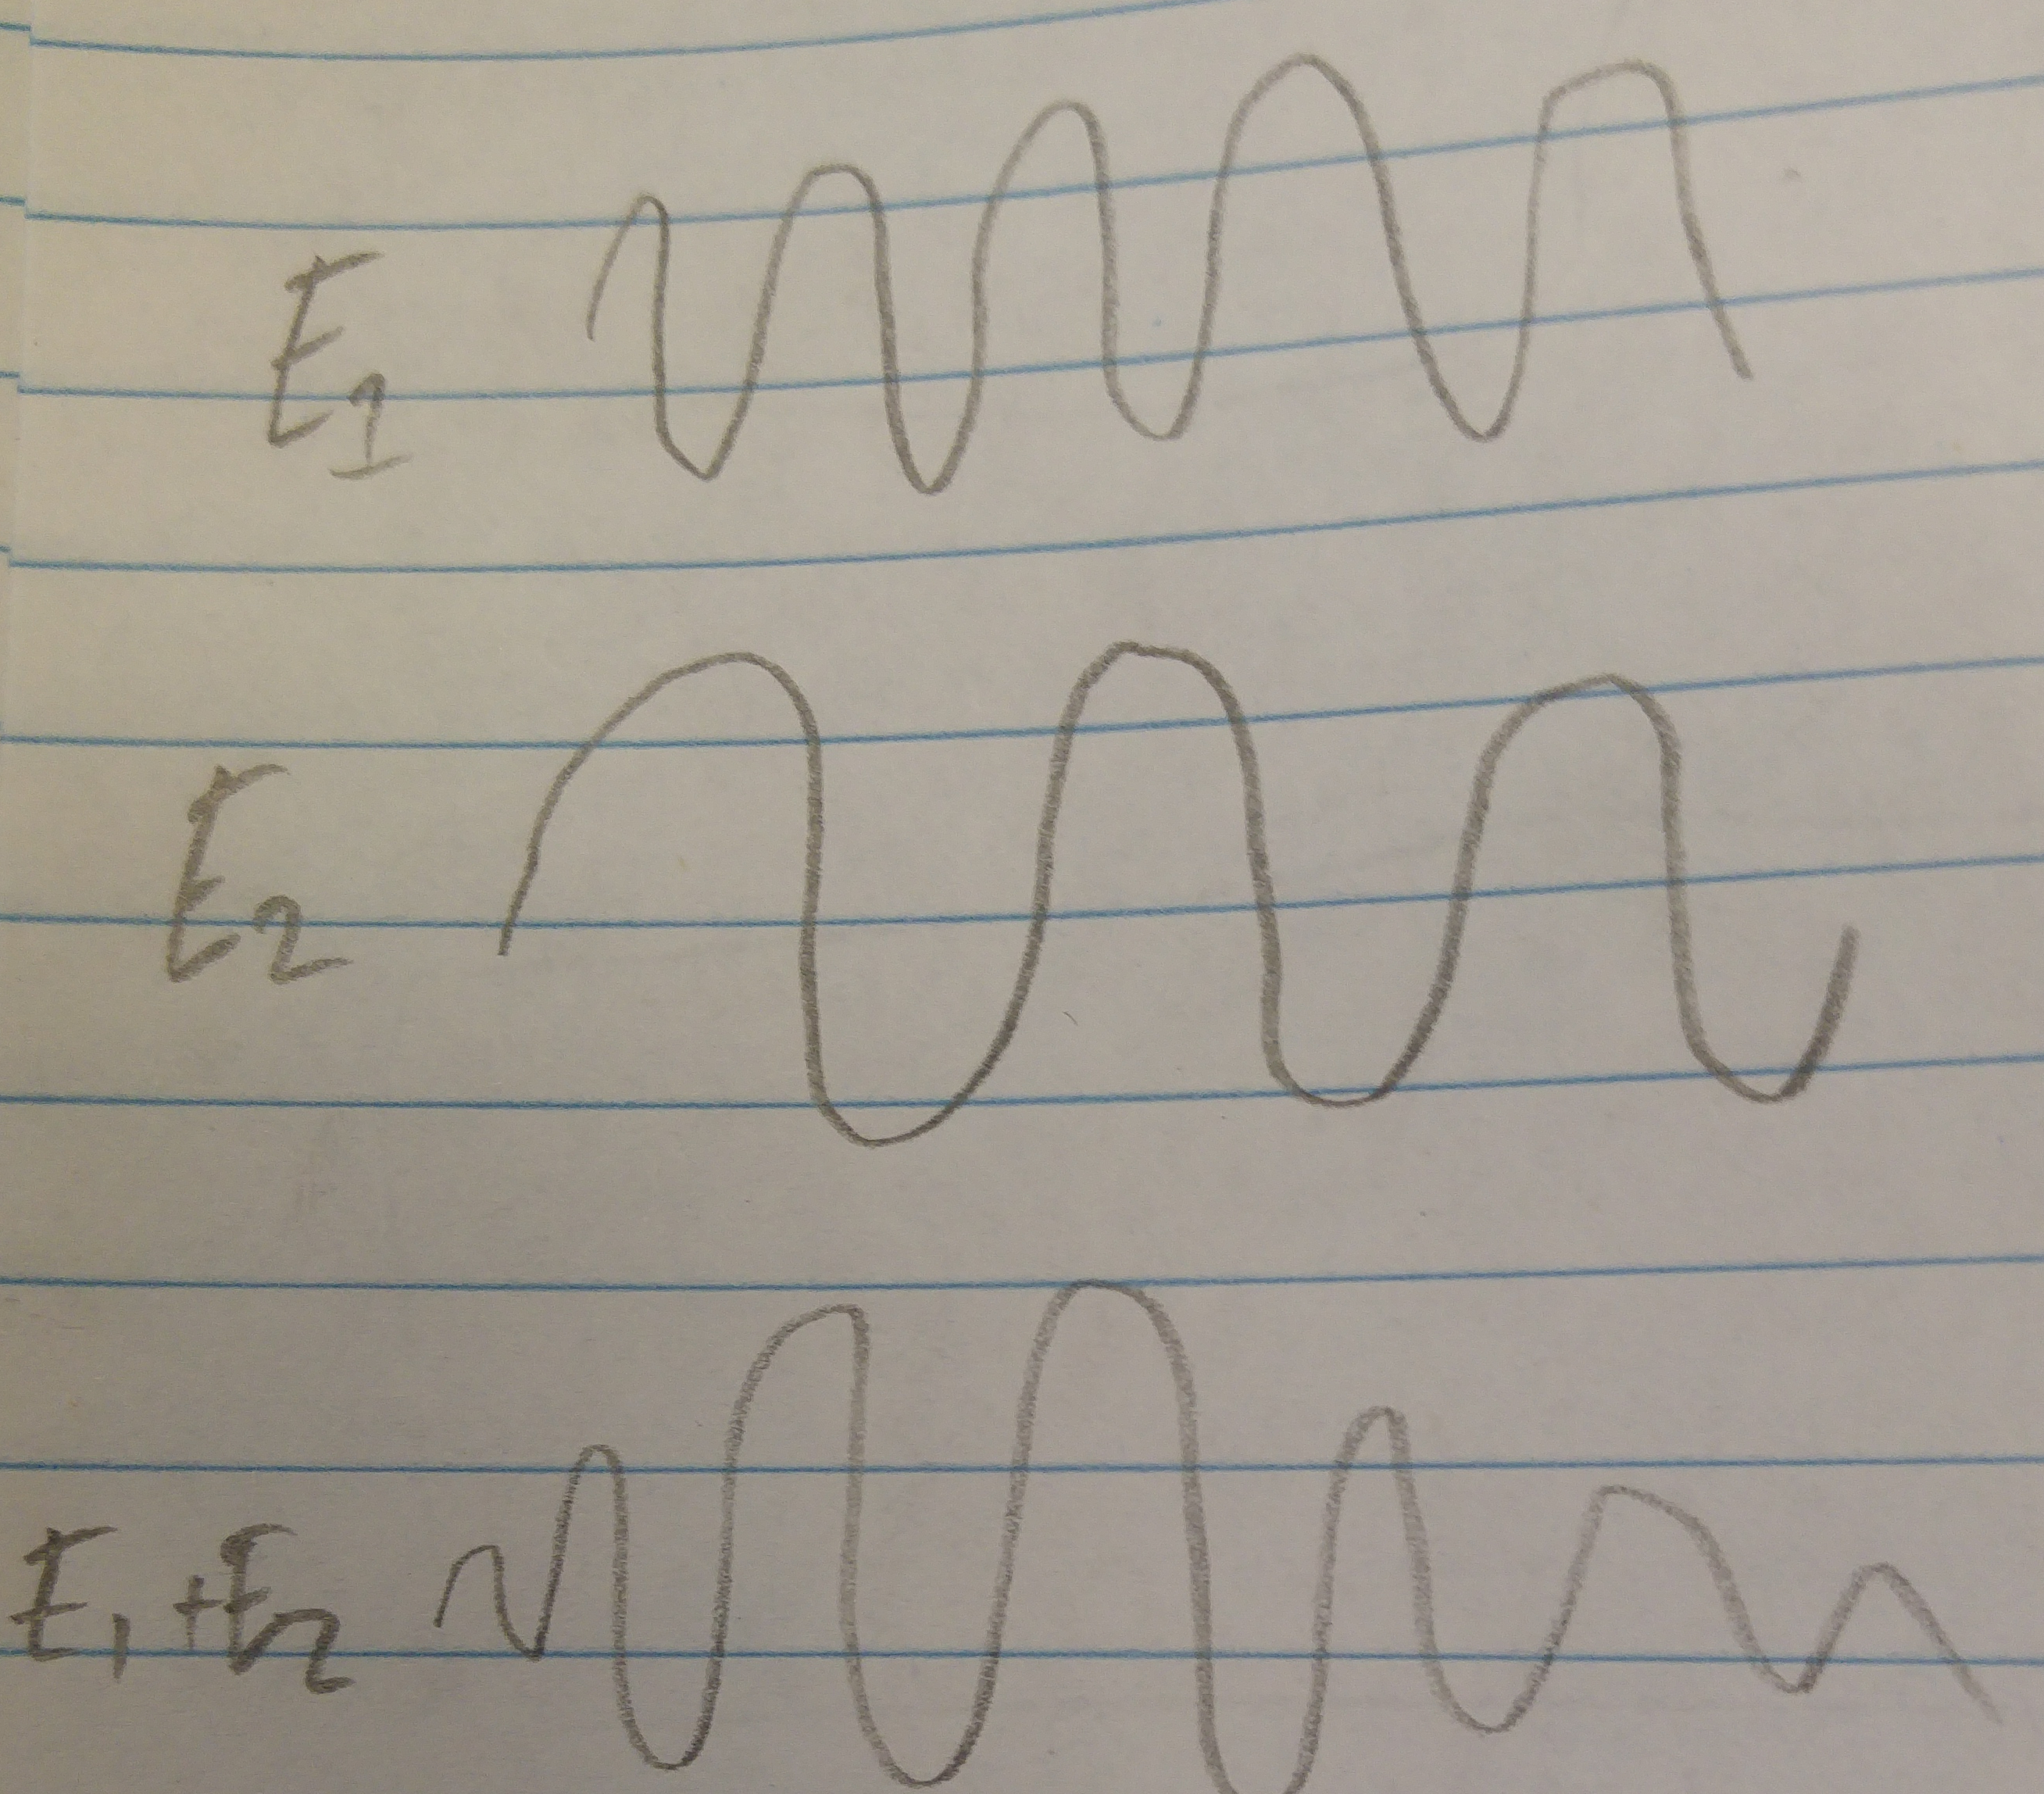 E₁
E₂
E₁+E₂